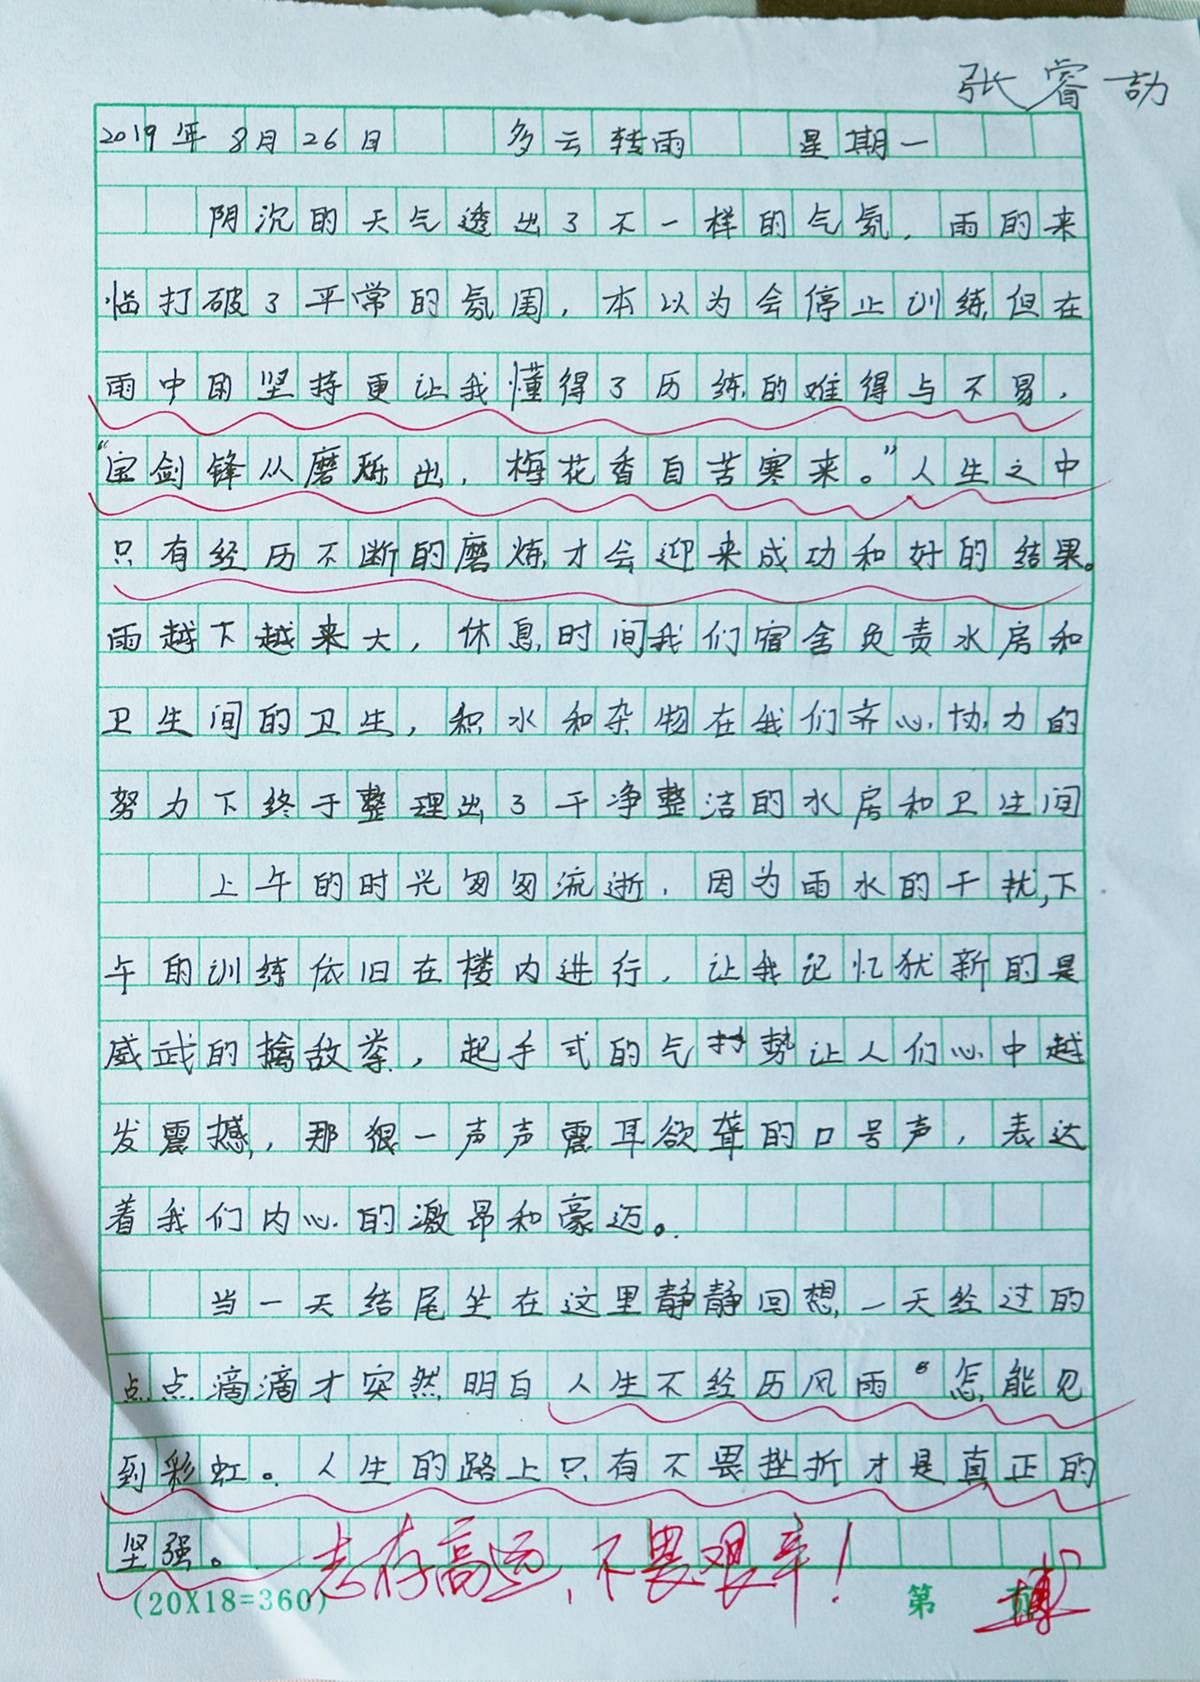 张睿劼
2019年8月26日 多云转雨 星期一
阴沉的天气透出了不一样的气氛，雨的来
临打破了平常的氛围，本以为会停止训练,但在
雨中的坚持更让我懂得了历练的难得与不易，
“宝剑锋从磨砾出，梅花香自苦寒来。”人生之中
只有经历不断的磨炼,才会迎来成功和好的结果。
雨越下越来大，休息时间我们宿舍负责水房和
卫生间的卫生，积水和杂物在我们齐心协力的
努力下终于整理出了干净整洁的水房和卫生间
上午的时光匆匆流逝，因为雨水的干扰,下
午的训练依旧在楼内进行，让我记忆犹新的是
威武的擒敌拳，起手式的气势让人们心中越
发震撼，那狠一声声震耳欲聋的口号声，表达
着我们内心的激昂和豪迈。
当一天结尾坐在这里静静回想,一天经过的
点点滴滴才突然明白人生不经历风雨“怎能见
到彩虹。人生的路上只有不畏挫折才是真正的
坚强。 志存高远，不畏艰辛！
(20X18=360) 第